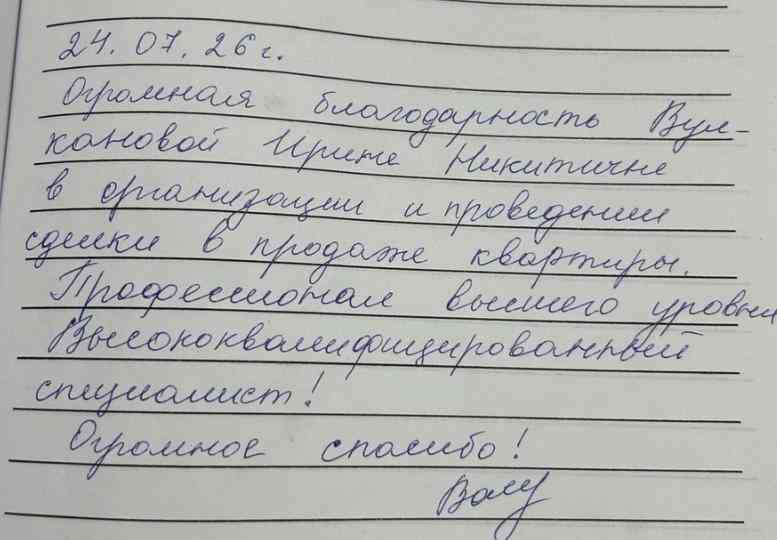 24.07.26 г.
Огромная благодарность Вул-
кановой Ирине Никитичне
в организации и проведении
сделки в продаже квартиры.
Профессионал высшего уровня
Высококвалифицированный
специалист!
Огромное спасибо!